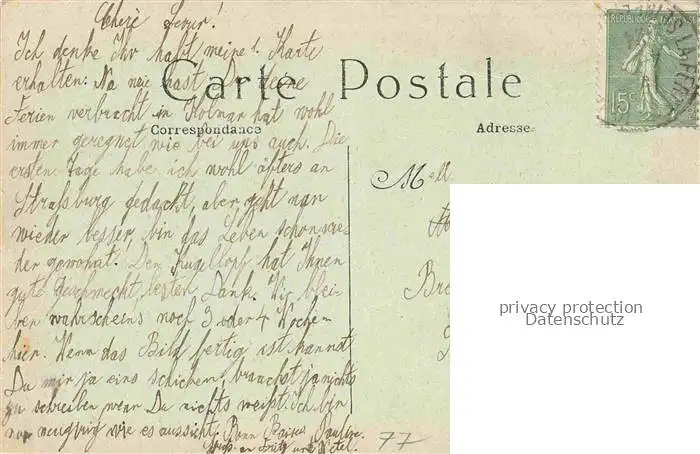 Chère Soeur!
Ich denke Ihr habt meine 1. Karte
erhalten. Na wie hast Du deine
Ferien verbracht in Kolmar hat wohl
immer geregnet wie bei uns auch. Die
ersten Tage habe ich wohl öfters an
Straßburg gedacht, aber geht nun
wieder besser, bin das Leben schon wie-
der gewohnt. Der Kugelhopf hat Ihnen
gute geschmeckt, besten Dank. Wir blei-
ben wahrscheins noch 3 oder 4 Wochen
hier. Wenn das Bild fertig ist kannst
Du mir ja eins schicken, brauchst ja nichts
zu schreiben wenn Du nichts weißt. Ich bin
nur neugierig wie es aussieht. Bons Baisers Pauline.
an Fritz und
Carte Postale
Correspondance
Adresse
Mell
77
RÉPUBLIQUE FRANÇAISE
15c
privacy protection
Datenschutz